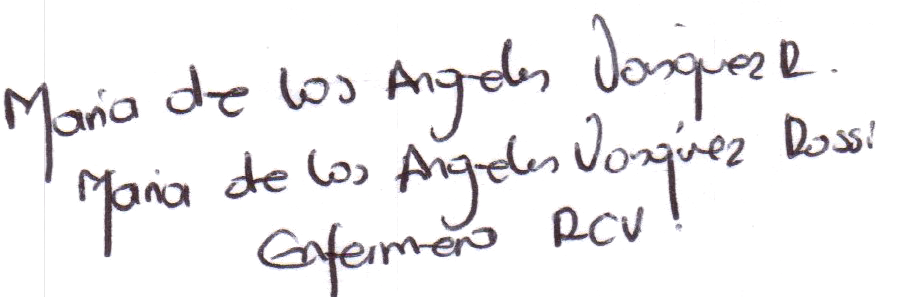 Maria de los Angeles Vasquez R.
Maria de los Angeles Vasquez Rossi
Enfermero RCV